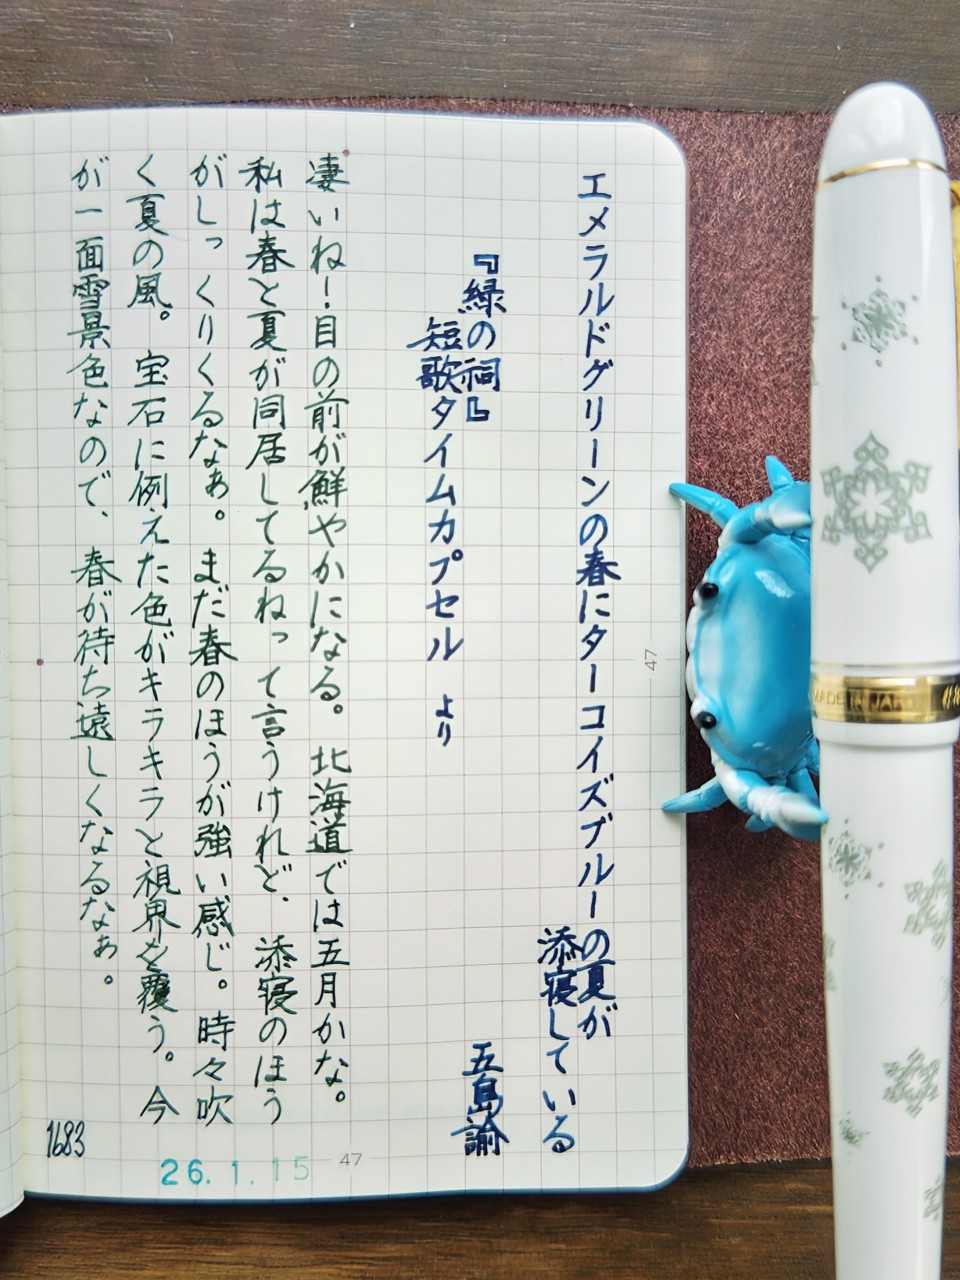 エメラルドグリーンの春にターコイズブルーの夏が
添寝している
『緑の祠』
五島諭
短歌タイムカプセル より
凄いね！目の前が鮮やかになる。北海道では五月かな。
私は春と夏が同居してるねって言うけれど、添寝のほう
がしっくりくるなぁ。まだ春のほうが強い感じ。時々吹
く夏の風。宝石に例えた色がキラキラと視界を覆う。今
が一面雪景色なので、春が待ち遠しくなるなぁ。
1683
26.1.15
47
47
MADE IN JAPAN